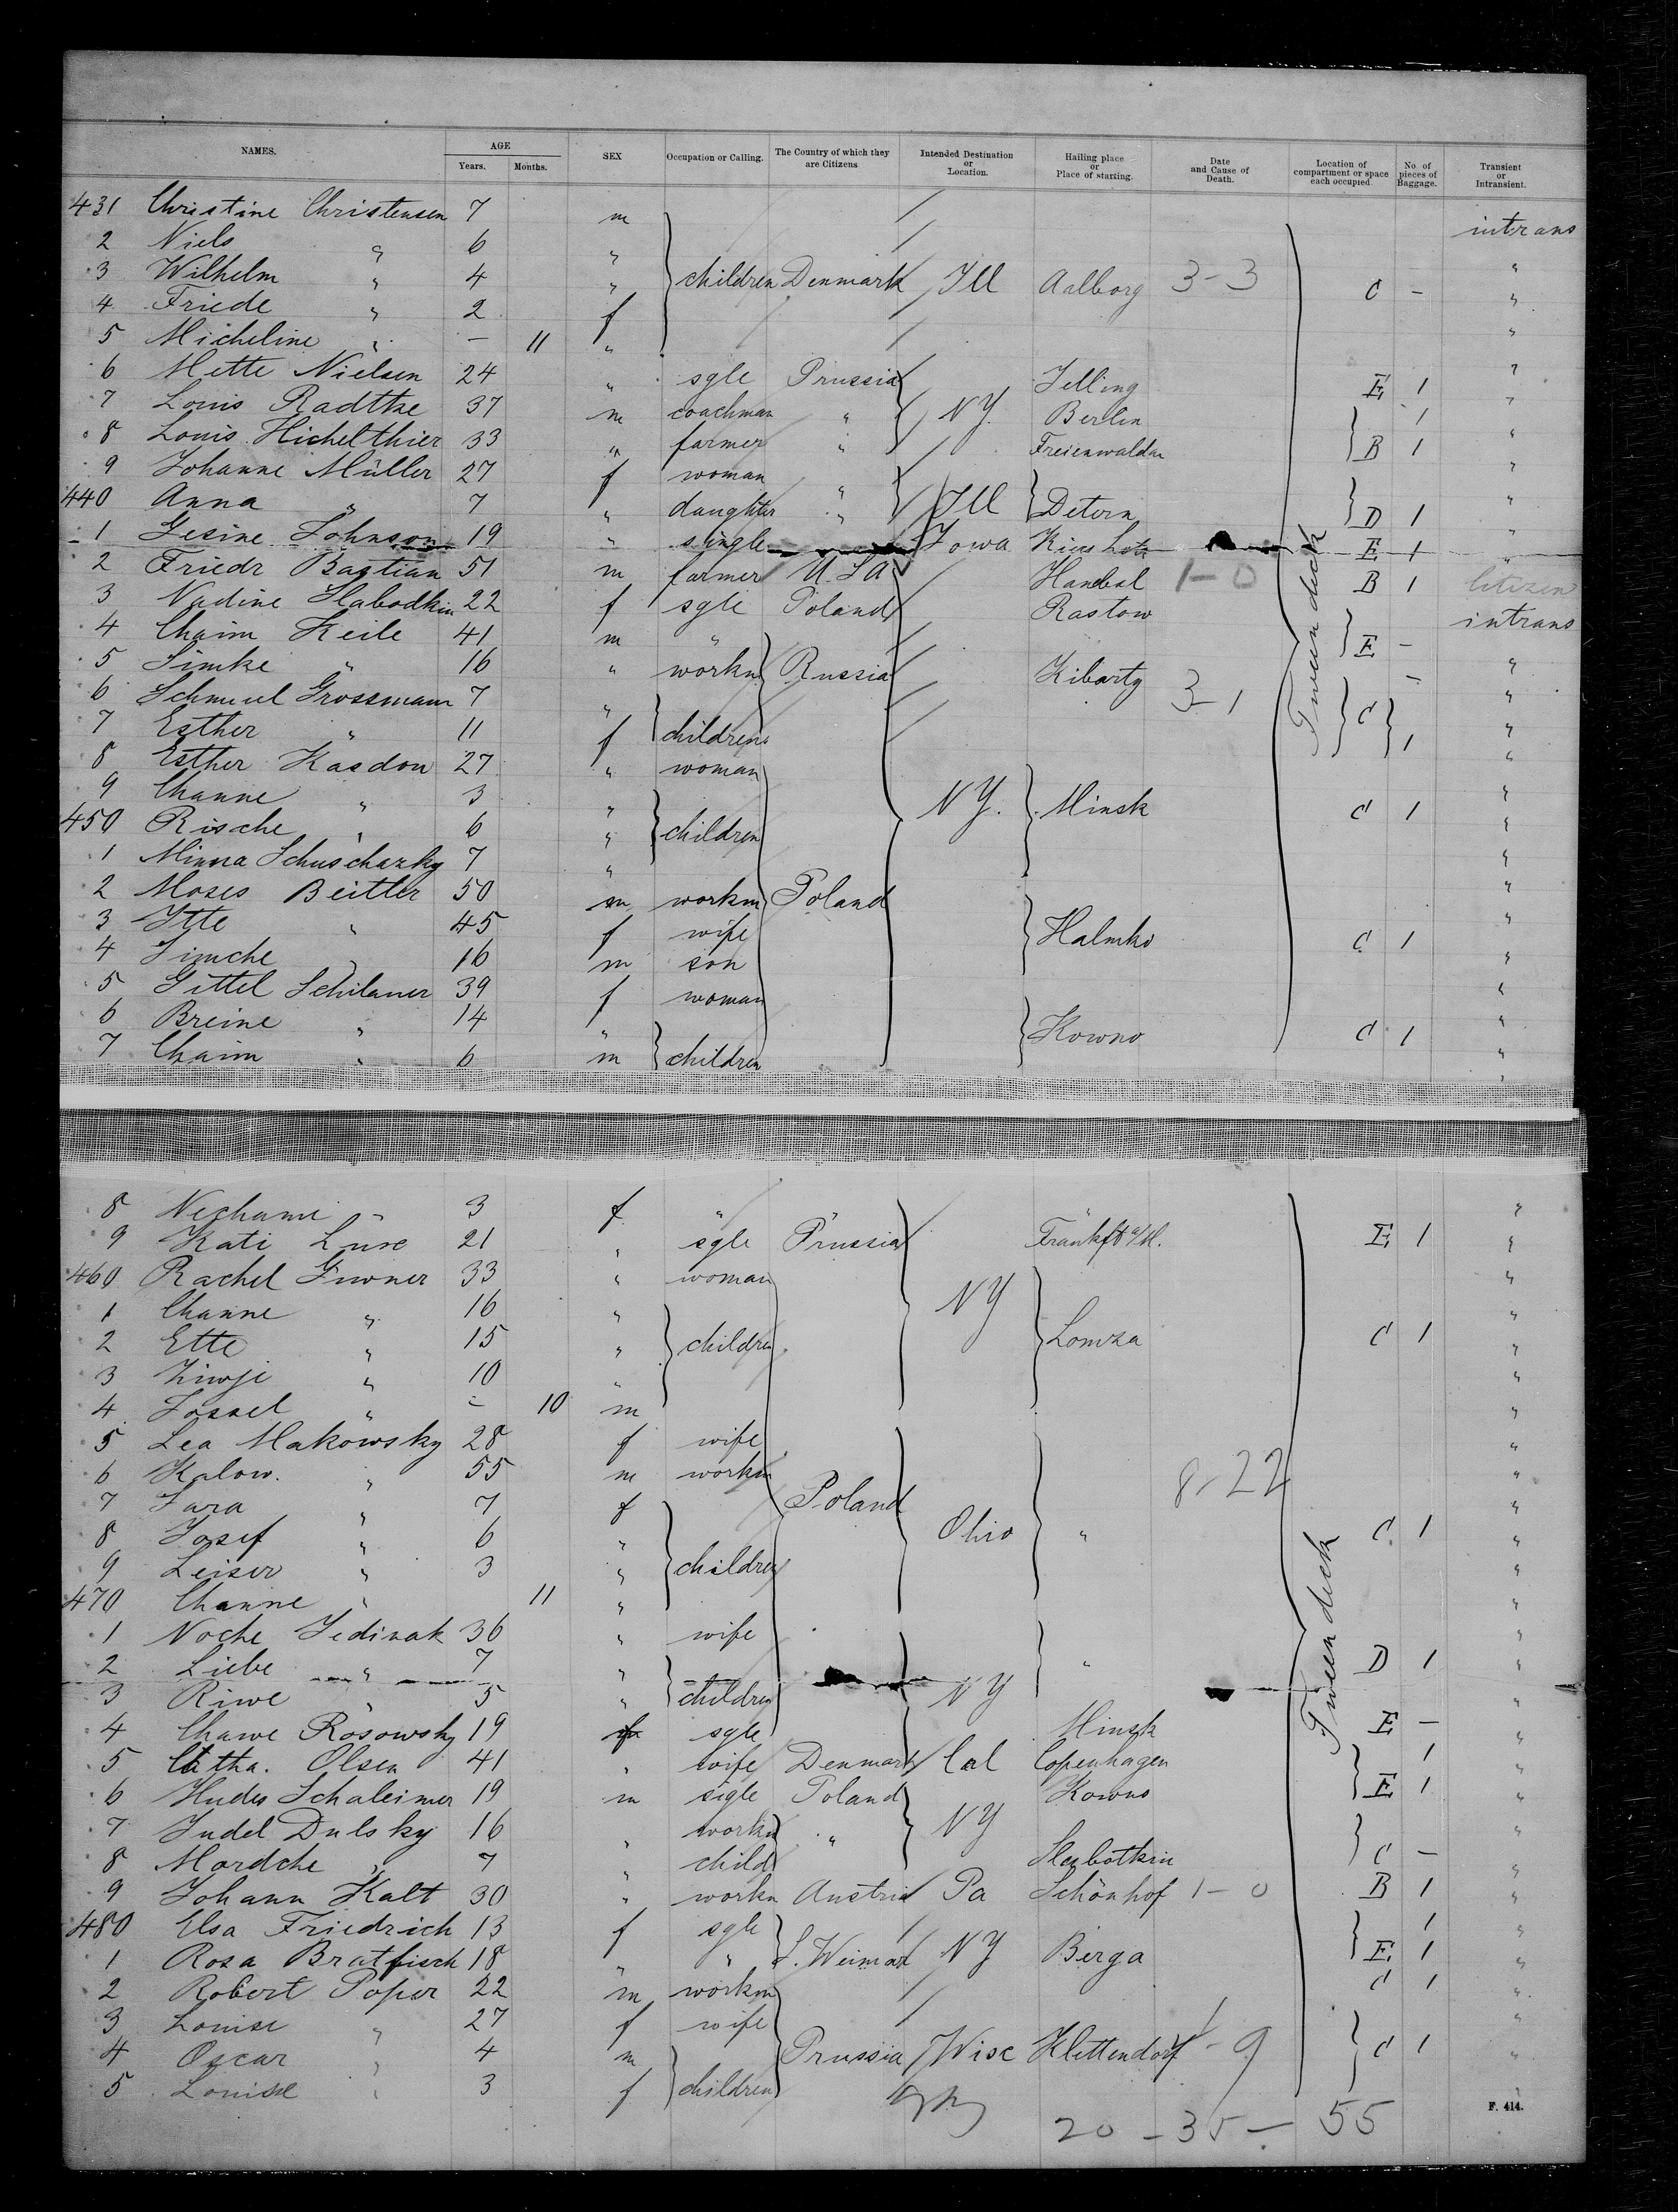 NAMES. AGE Years. Months. SEX Occupation or Calling. The Country of which they are Citizens Intended Destination or Location. Hailing place or Place of starting. Date and Cause of Death. Location of compartment or space each occupied. No. of pieces of Baggage. Transient or Intransient.
431 Christine Christensen 7 m intrans
2 Niels " 6 " "
3 Wilhelm " 4 " children Denmark Ill Aalborg 3-3 C - "
4 Friede " 2 f "
5 Micheline " - 11 " "
6 Mette Nielsen 24 " sgle Prussia Jelling E 1 "
7 Louis Radtke 37 m coachman " NY. Berlin 1 "
8 Louis Hichelthier 33 " farmer " Freienwaldau B 1 "
9 Johanne Müller 27 f woman " "
440 Anna " 7 " daughter " Ill Detern D 1 "
1 Gesine Johnson 19 " single Iowa E 1 "
2 Friedr Bastian 51 m farmer USA Hanbal 1-0 B 1 Citizen
3 Nadine Slabodkin 22 f sgle Poland Rastow intrans
4 Chaim Keile 41 m " E - "
5 Simke " 16 " workm Russia Kibarty - "
6 Schmuel Grossmann 7 " 3-1 C "
7 Esther " 11 f children 1 "
8 Esther Kasdon 27 " woman "
9 Channe " 3 " NY. Minsk C 1 "
450 Rische " 6 " children "
1 Minna Schuscharky 7 " "
2 Moses Beitler 50 m workm Poland "
3 Itte " 45 f wife Halmko C 1 "
4 Simche " 16 m son "
5 Gittel Schilaner 39 f woman "
6 Breine " 14 " Kowno C 1 "
7 Chaim " 6 m children "
Tween deck
8 Nechame " 3 f " "
9 Kati Luse 21 " sgle Prussia Frankft a/M. E 1 "
460 Rachel Giwner 33 " woman "
1 Channe " 16 " NY "
2 Ette " 15 " children Lomza C 1 "
3 Ziwje " 10 " "
4 Jossel " - 10 m "
5 Lea Makowsky 28 f wife "
6 Kalow. " 55 m workm 8-22 "
7 Sara " 7 f Poland "
8 Josef " 6 " Ohio " C 1 "
9 Leiser " 3 " children "
470 Channe " 11 " "
1 Noche Jedinak 36 " wife "
2 Liebe " 7 " " D 1 "
3 Riwe " 5 " children NY "
4 Chawe Rosowsky 19 f sgle Minsk E - "
5 Ctha. Olsen 41 " wife Denmark Cal Copenhagen 1 "
6 Hudes Schaleimer 19 m sigle Poland Kowno E 1 "
7 Judel Dulsky 16 " workm " NY "
8 Mordche " 7 " child Slabotkin C - "
9 Johann Kalt 30 " workm Austria Pa Schönhof 1-0 B 1 "
480 Elsa Friedrich 13 f sgle 1 "
1 Rosa Bratfisch 18 " " S. Weimar NY Berga E 1 "
2 Robert Poper 22 m workm C 1 "
3 Louise " 27 f wife "
4 Oscar " 4 m Prussia Wisc Klettendorf 1-9 C 1 "
5 Louise " 3 f children
Tween deck
F. 414.
20 - 35 - 55